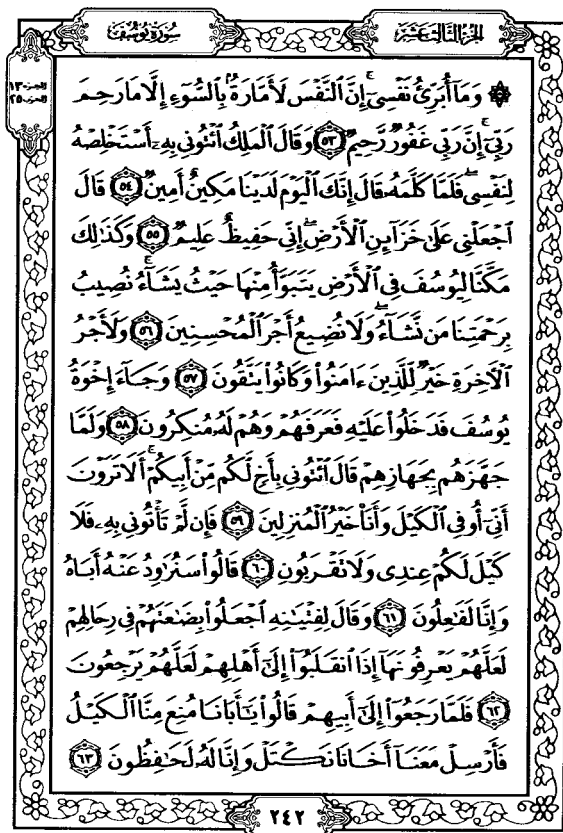 سُورَةُ يُوسُفَ
الجزء الثالث عشر
الجزء ١٣
الحزب ٢٥
۞ وَمَآ أُبَرِّئُ نَفْسِىٓ ۚ إِنَّ ٱلنَّفْسَ لَأَمَّارَةٌۢ بِٱلسُّوٓءِ إِلَّا مَا رَحِمَ
رَبِّىٓ ۚ إِنَّ رَبِّى غَفُورٌ رَّحِيمٌ ٥٣ وَقَالَ ٱلْمَلِكُ ٱئْتُونِى بِهِۦٓ أَسْتَخْلِصْهُ
لِنَفْسِى ۖ فَلَمَّا كَلَّمَهُۥ قَالَ إِنَّكَ ٱلْيَوْمَ لَدَيْنَا مَكِينٌ أَمِينٌ ٥٤ قَالَ
ٱجْعَلْنِى عَلَىٰ خَزَآئِنِ ٱلْأَرْضِ ۖ إِنِّى حَفِيظٌ عَلِيمٌ ٥٥ وَكَذَٰلِكَ
مَكَّنَّا لِيُوسُفَ فِى ٱلْأَرْضِ يَتَبَوَّأُ مِنْهَا حَيْثُ يَشَآءُ ۚ نُصِيبُ
بِرَحْمَتِنَا مَن نَّشَآءُ ۖ وَلَا نُضِيعُ أَجْرَ ٱلْمُحْسِنِينَ ٥٦ وَلَأَجْرُ
ٱلْءَاخِرَةِ خَيْرٌ لِّلَّذِينَ ءَامَنُوا۟ وَكَانُوا۟ يَتَّقُونَ ٥٧ وَجَآءَ إِخْوَةُ
يُوسُفَ فَدَخَلُوا۟ عَلَيْهِ فَعَرَفَهُمْ وَهُمْ لَهُۥ مُنكِرُونَ ٥٨ وَلَمَّا
جَهَّزَهُم بِجَهَازِهِمْ قَالَ ٱئْتُونِى بِأَخٍ لَّكُم مِّنْ أَبِيكُمْ ۚ أَلَا تَرَوْنَ
أَنِّىٓ أُوفِى ٱلْكَيْلَ وَأَنَا۠ خَيْرُ ٱلْمُنزِلِينَ ٥٩ فَإِن لَّمْ تَأْتُونِى بِهِۦ فَلَا
كَيْلَ لَكُمْ عِندِى وَلَا تَقْرَبُونِ ٦٠ قَالُوا۟ سَنُرَٰوِدُ عَنْهُ أَبَاهُ
وَإِنَّا لَفَٰعِلُونَ ٦١ وَقَالَ لِفِتْيَٰنِهِ ٱجْعَلُوا۟ بِضَٰعَتَهُمْ فِى رِحَالِهِمْ
لَعَلَّهُمْ يَعْرِفُونَهَآ إِذَا ٱنقَلَبُوٓا۟ إِلَىٰٓ أَهْلِهِمْ لَعَلَّهُمْ يَرْجِعُونَ
٦٢ فَلَمَّا رَجَعُوٓا۟ إِلَىٰٓ أَبِيهِمْ قَالُوا۟ يَٰٓأَبَانَا مُنِعَ مِنَّا ٱلْكَيْلُ
فَأَرْسِلْ مَعَنَآ أَخَانَا نَكْتَلْ وَإِنَّا لَهُۥ لَحَٰفِظُونَ ٦٣
٢٤٢